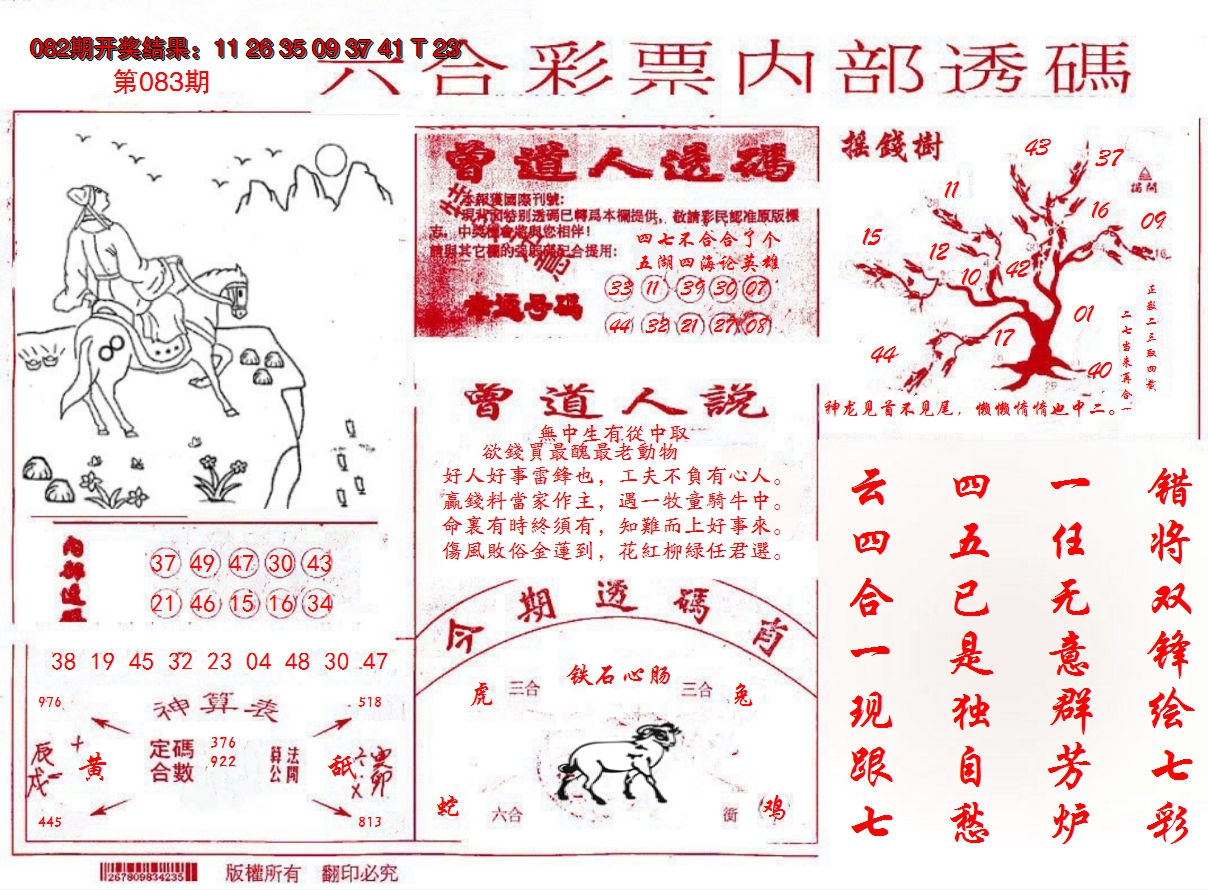 082期开奖结果：11 26 35 09 37 41 T 23
第083期
六合彩票内部透碼
曾道人透碼
本報獲國際刊號:
現背面特别透碼已轉爲本欄提供, 敬請彩民認准原版標
志。中獎機會將與您相伴!
請與其它欄的强弱碼配合提用:
四七不合合了个
五湖四海论英雄
幸運号码
33 11 39 30 07
44 32 21 27 08
摇錢樹
43
37
11
16
09
15
12
10
42
01
17
44
40
正数二三取四载
二七当来再合一
神龙见首不见尾，懒懒惰惰也中二。
曾道人説
無中生有從中取
欲錢買最醜最老動物
好人好事雷鋒也，工夫不負有心人。
贏錢料當家作主，遇一牧童騎牛中。
命裏有時終須有，知難而上好事來。
傷風敗俗金蓮到，花紅柳緑任君選。
内部透碼
37 49 47 30 43
21 46 15 16 34
38 19 45 32 23 04 48 30 .47
976
518
神算表
定碼合數
376
922
算公
法開
黄
445
813
今期透碼肖
铁石心肠
虎
三合
三合
兔
蛇
六合
衝
鸡
错将双锋绘七彩
一任无意群芳炉
四五已是独自愁
云四合一现跟七
267809834235
版權所有 翻印必究